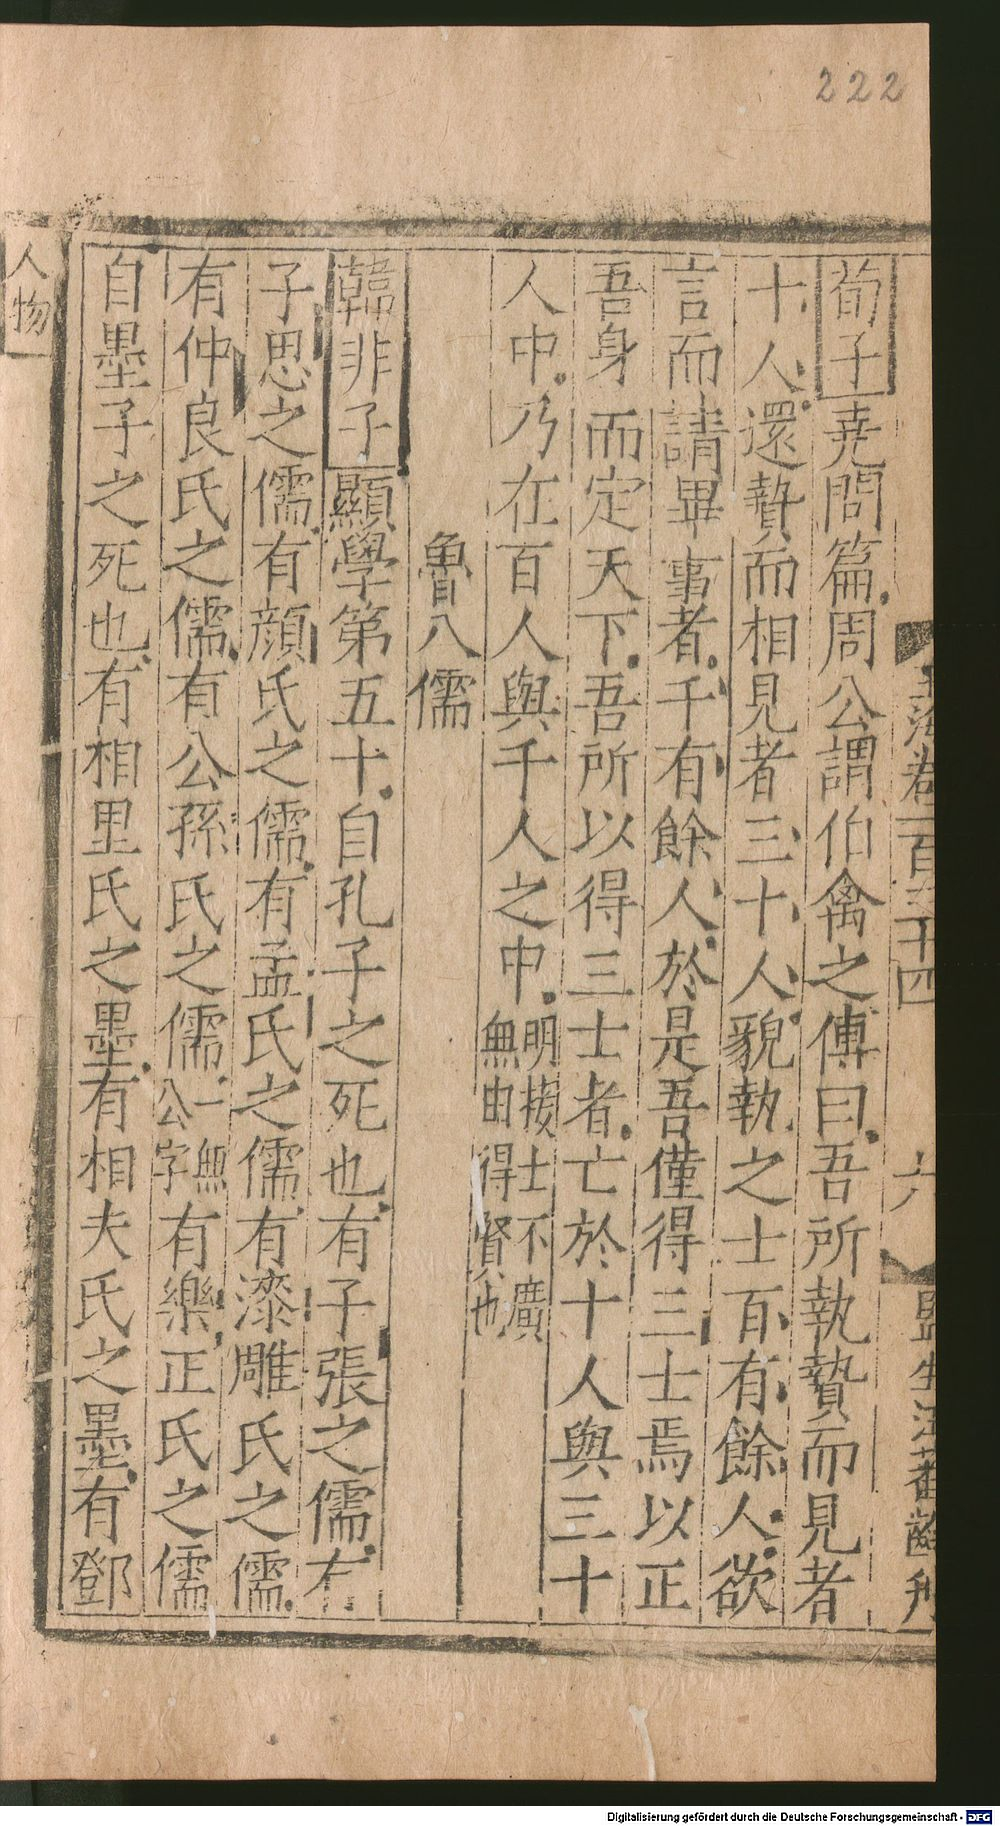 222
玉海卷一百三十四　六
荀子堯問篇周公謂伯禽之傅曰吾所執贄而見者
十人還贄而相見者三十人貌執之士百有餘人欲
言而請畢事者千有餘人於是吾僅得三士焉以正
吾身而定天下吾所以得三士者亡於十人與三十
人中乃在百人與千人之中明接士不廣
無由得賢也
魯八儒
韓非子顯學第五十自孔子之死也有子張之儒有
子思之儒有顔氏之儒有孟氏之儒有漆雕氏之儒
有仲良氏之儒有公孫氏之儒一無
公字有樂正氏之儒
自墨子之死也有相里氏之墨有相夫氏之墨有鄧
人物
Digitalisierung gefördert durch die Deutsche Forschungsgemeinschaft - DFG